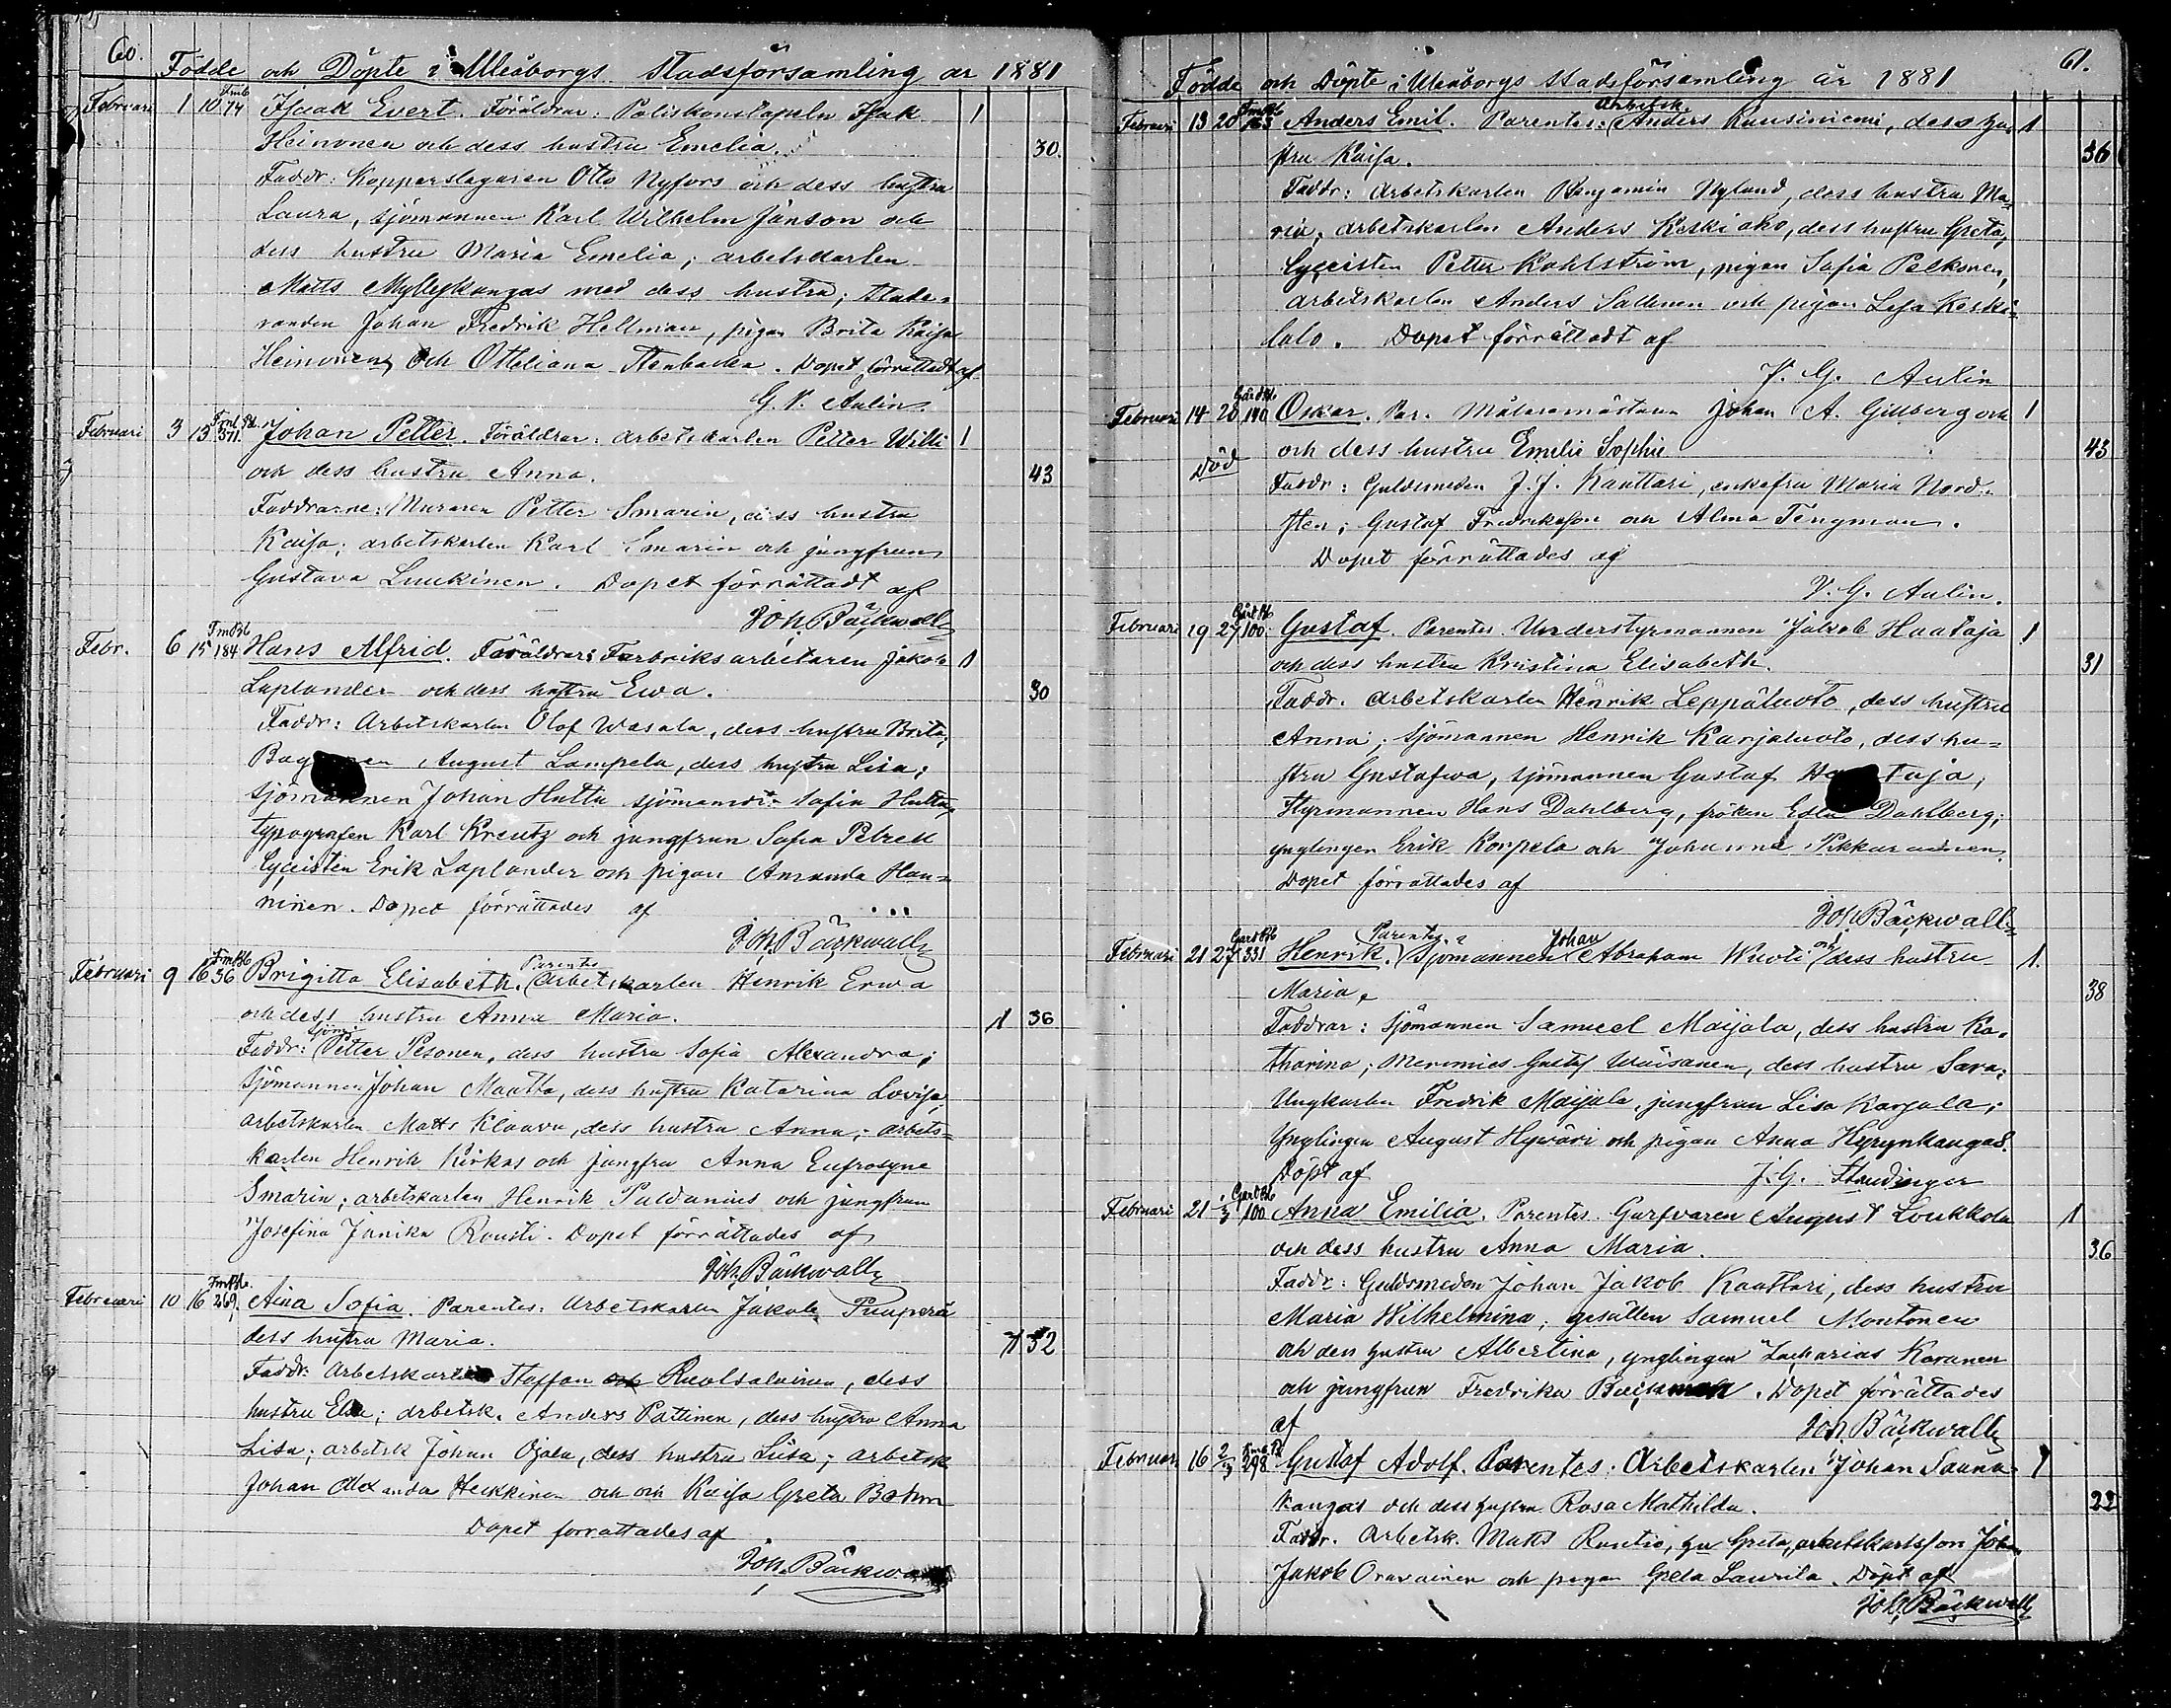 60.
Födde och Döpte i Uleåborgs Stadsförsamling år 1881
Februari 1 10 Fmb 74 Isaak Evert. Föräldrar: Poliskonstapeln Isak 1
Heinonen och dess hustru Emelia. 30.
Faddr: Kopparslagaren Otto Nyfors och dess hustru
Laura, sjömannen Karl Wilhelm Janson och
dess hustru Maria Emelia; arbetskarlen
Matts Myllykangas med dess hustru; Stude-
randen Johan Fredrik Hellman, pigan Brita Kaisa
Heinonen och Otteliana Stenbacka. Dopet förrättadt af
G. V. Aulin.
Februari 3 13 371. Johan Petter. Föräldrar: arbetskarlen Petter Wilki 1
och dess hustru Anna. 43
Faddrarne: Muraren Petter Smarin, dess hustru
Kaisa; arbetskarlen Karl Smarin och jungfrun
Gustava Luukinen. Dopet förrättadt af
Joh. Bäckwall
Febr. 6 15 FmBl 184 Hans Alfrid. Föräldrar: Farbriksarbetaren Jakob 1
Laplander och dess hustru Ewa. 30
Faddr: Arbetskarlen Olof Wasala, dess hustru Brita;
August Lampela, dess hustru Lisa;
Sjömannen Johan Hutta sjömansd. Sofia Hutta;
typografen Karl Kreutz och jungfrun Sofia Petrell
Lyceisten Erik Laplander och pigan Amanda Han-
ninen. Dopet förrättades af
Joh. Bäckwall
Februari 9 16 FmBl 36 Brigitta Elisabeth. Parentes Arbetskarlen Henrik Erwa
och dess hustru Anna Maria. 1 36
Faddr: Sjöm. Petter Pesonen, dess hustru Sofia Alexandra;
Sjömannen Johan Maatta, dess hustru Katarina Lovisa,
arbetskarlen Matts Klaavu, dess hustru Anna; arbets-
karlen Henrik Kirkas och jungfru Anna Eufrosyne
Smarin; arbetskarlen Henrik Paldanius och jungfrun
Josefina Janika Rousti. Dopet förrättades af
Joh. Bäckwall
Februari 10 16 FmBl. 269, Aina Sofia. Parentes: Arbetskarlen Jakob Puuperä
dess hustru Maria. 1 32
Faddr: Arbetskarlen Staffan Ruolsalainen, dess
hustru Elsa; arbetsk. Anders Pattinen, dess hustru Anna
Lisa; arbetsk Johan Ojala, dess hustru Liisa; arbetsk
Johan Alexander Heikkinen och och Kaisa Greta Bohm
Dopet förrättades af
Joh. Bäckwall
61.
Födde och Döpte i Uleåborgs Stadsförsamling år 1881
Februari 13 20 FmBl 163 Anders Emil. Parentes: Arbetsk. Anders Kuusiniemi, dess hu- 1
stru Kaisa. 36
Faddr: Arbetskarlen Benjamin Nylund, dess hustru Ma-
ria, arbetskarlen Anders Keskiaho, dess hustru Greta;
Lyceisten Petter Kohlström, pigan Sofia Pelkonen,
arbetskarlen Anders Sallinen och pigan Lisa Keski-
talo. Dopet förrättadt af
V. G. Aulin
Februari 14 20 GårdBl 140 Oskar. Par. Målaremästaren Johan A. Gillberg och 1
och dess hustru Emelie Sophie 43
Död
Faddr: Guldsmeden J. J. Kauttari, enkefru Maria Nord-
sten; Gustaf Fredriksson och Alma Tengman.
Dopet förrättades af
V. G. Aulin.
Februari 19 27 GårdBl 100. Gustaf. Parentes Understyrmannen Jakob Haataja 1
och dess hustru Kristina Elisabeth. 31
Faddr. Arbetskarlen Henrik Leppäluoto, dess hustru
Anna; Sjömannen Henrik Karjaluoto, dess hu-
stru Gustafwa, sjömannen Gustaf Haataja,
Styrmannen Hans Dahlberg, fröken Edla Dahlberg;
ynglingen Erik Korpela och Johanna Pikkarainen.
Dopet förrättades af
Joh. Bäckwall
Februari 21 27 GårdBl 331 Henrik. Parentes: Sjömannen Johan Abraham Wuoti och dess hustru 1.
Maria. 38
Faddrar: Sjömannen Samuel Maijala, dess hustru Ka-
tharina; Merimies Gustaf Wäisänen, dess hustru Sara;
Ungkarlen Fredrik Maijala, jungfrun Lisa Karjula;
Ynglingen August Hywäri och pigan Anna Hyrynkangas.
Döpt af J. G. Staudinger
Februari 21 1/3 GårdBl 100 Anna Emilia. Parentes. Garfvaren August Loukkola 1
och dess hustru Anna Maria. 36
Faddr: Guldsmeden Johan Jakob Kauttari, dess hustru
Maria Wilhelmina; gesällen Samuel Montonen
och dess hustru Albertina, ynglingen Zacharias Karanen
och jungfrun Fredrika. Dopet förrättades
af Joh. Bäckwall
Februari 16 2/3 298 Gustaf Adolf. Parentes: Arbetskarlen Johan Sauna- 1
kangas och dess hustru Rosa Mathilda. 22
Faddr. Arbetsk. Matts Ruutio, hu Greta, arbetskarlsson Joh.
Jakob Oravainen och pigan Greta Laurila. Döpt af
Joh. Bäckwall